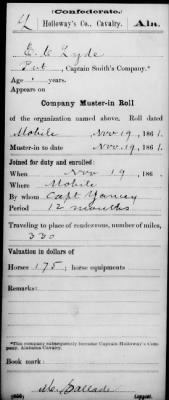 (Confederate.)
Holloway's Co., Cavalry. Ala.
Pvt, Captain Smith's Company.*
Age years.
Appears on
Company Muster-in Roll
of the organization named above. Roll dated
Mobile Nov 19, 1861.
Muster-in to date Nov. 19, 1861.
Joined for duty and enrolled:
When Nov 19, 1861.
Where Mobile
By whom Capt Yancey
Period 12 months
Traveling to place of rendezvous, number of miles,
330
Valuation in dollars of
Horses 175; horse equipments
Remarks:
*This company subsequently became Captain Holloway's Company, Alabama Cavalry.
Book mark:
Copyist.